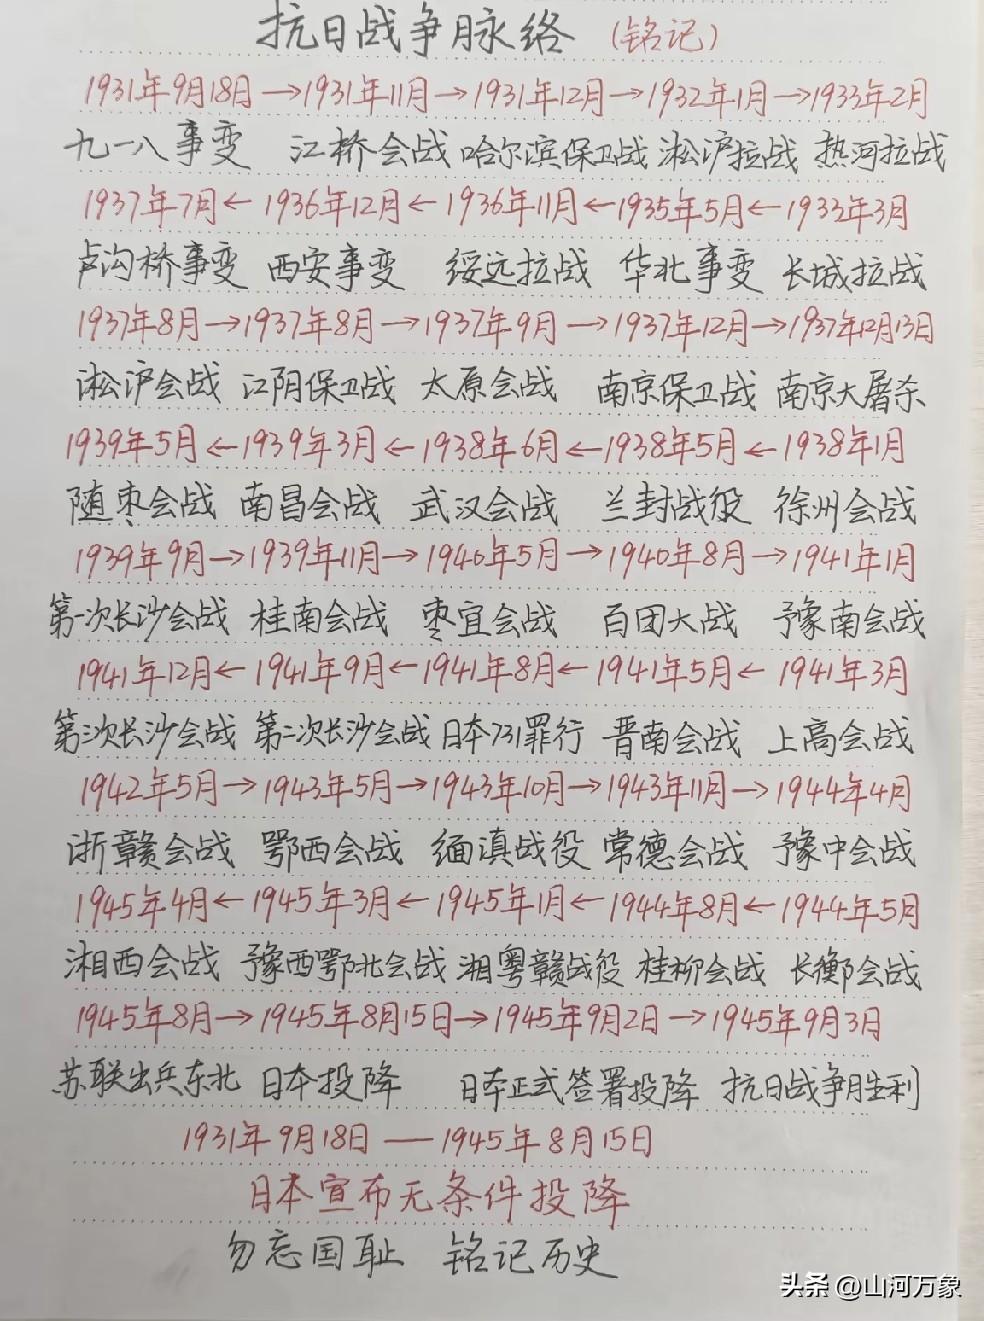 抗日战争脉络（铭记）
1931年9月18日→1931年11月→1931年12月→1932年1月→1933年2月
九一八事变 江桥会战 哈尔滨保卫战 淞沪拉战 热河拉战
1937年7月←1936年12月←1936年11月←1935年5月←1933年3月
卢沟桥事变 西安事变 绥远拉战 华北事变 长城拉战
1937年8月→1937年8月→1937年9月→1937年12月→1937年12月13日
淞沪会战 江阴保卫战 太原会战 南京保卫战 南京大屠杀
1939年5月←1939年3月←1938年6月←1938年5月←1938年1月
随枣会战 南昌会战 武汉会战 兰封战役 徐州会战
1939年9月→1939年11月→1940年5月→1940年8月→1941年1月
第一次长沙会战 桂南会战 枣宜会战 百团大战 予豫南会战
1941年12月←1941年9月←1941年8月←1941年5月←1941年3月
第三次长沙会战 第二次长沙会战 日本731罪行 晋南会战 上高会战
1942年5月→1943年5月→1943年10月→1943年11月→1944年4月
浙赣会战 鄂西会战 缅滇战役 常德会战 豫中会战
1945年4月←1945年3月←1945年1月←1944年8月←1944年5月
湘西会战 豫西鄂北会战 湘粤赣战役 桂柳会战 长衡会战
1945年8月→1945年8月15日→1945年9月2日→1945年9月3日
苏联出兵东北 日本投降 日本正式签署投降 抗日战争胜利
1931年9月18日——1945年8月15日
日本宣布无条件投降
勿忘国耻 铭记历史
头条 @山河万象